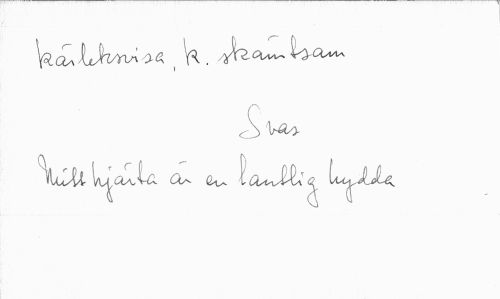 kärleksvisa, k. skämtsam
Svar
Mitt hjärta är en lantlig hydda